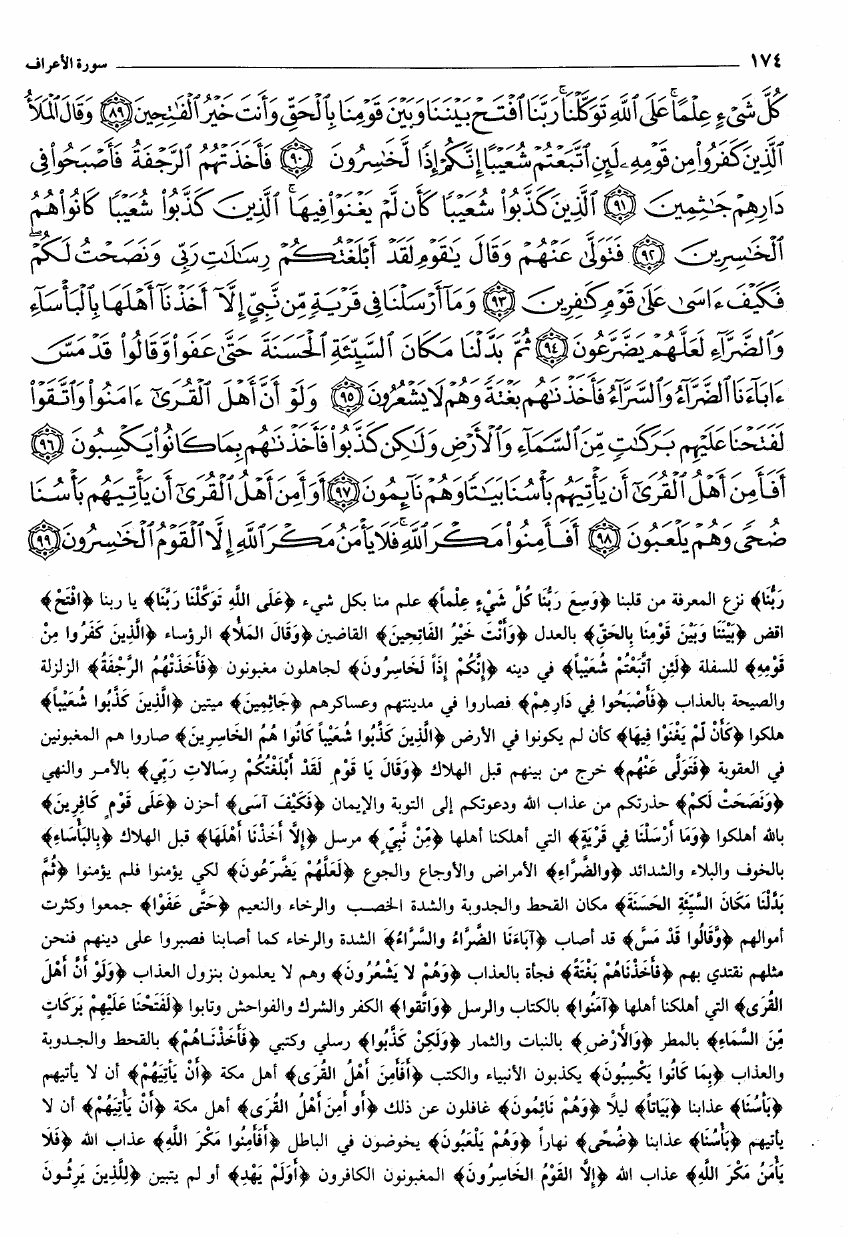 ١٧٤ سورة الأعراف
كُلَّ شَيْءٍ عِلْمًا عَلَى ٱللَّهِ تَوَكَّلْنَا رَبَّنَا ٱفْتَحْ بَيْنَنَا وَبَيْنَ قَوْمِنَا بِٱلْحَقِّ وَأَنتَ خَيْرُ ٱلْفَٰتِحِينَ ٨٩ وَقَالَ ٱلْمَلَأُ
ٱلَّذِينَ كَفَرُوا۟ مِن قَوْمِهِۦ لَئِنِ ٱتَّبَعْتُمْ شُعَيْبًا إِنَّكُمْ إِذًا لَّخَٰسِرُونَ ٩٠ فَأَخَذَتْهُمُ ٱلرَّجْفَةُ فَأَصْبَحُوا۟ فِى
دَارِهِمْ جَٰثِمِينَ ٩١ ٱلَّذِينَ كَذَّبُوا۟ شُعَيْبًا كَأَن لَّمْ يَغْنَوْا۟ فِيهَا ۚ ٱلَّذِينَ كَذَّبُوا۟ شُعَيْبًا كَانُوا۟ هُمُ
ٱلْخَٰسِرِينَ ٩٢ فَتَوَلَّىٰ عَنْهُمْ وَقَالَ يَٰقَوْمِ لَقَدْ أَبْلَغْتُكُمْ رِسَٰلَٰتِ رَبِّى وَنَصَحْتُ لَكُمْ ۖ
فَكَيْفَ ءَاسَىٰ عَلَىٰ قَوْمٍ كَٰفِرِينَ ٩٣ وَمَآ أَرْسَلْنَا فِى قَرْيَةٍ مِّن نَّبِىٍّ إِلَّآ أَخَذْنَآ أَهْلَهَا بِٱلْبَأْسَآءِ
وَٱلضَّرَّآءِ لَعَلَّهُمْ يَضَّرَّعُونَ ٩٤ ثُمَّ بَدَّلْنَا مَكَانَ ٱلسَّيِّئَةِ ٱلْحَسَنَةَ حَتَّىٰ عَفَوا۟ وَّقَالُوا۟ قَدْ مَسَّ
ءَابَآءَنَا ٱلضَّرَّآءُ وَٱلسَّرَّآءُ فَأَخَذْنَٰهُم بَغْتَةً وَهُمْ لَا يَشْعُرُونَ ٩٥ وَلَوْ أَنَّ أَهْلَ ٱلْقُرَىٰٓ ءَامَنُوا۟ وَٱتَّقَوْا۟
لَفَتَحْنَا عَلَيْهِم بَرَكَٰتٍ مِّنَ ٱلسَّمَآءِ وَٱلْأَرْضِ وَلَٰكِن كَذَّبُوا۟ فَأَخَذْنَٰهُم بِمَا كَانُوا۟ يَكْسِبُونَ ٩٦
أَفَأَمِنَ أَهْلُ ٱلْقُرَىٰٓ أَن يَأْتِيَهُم بَأْسُنَا بَيَٰتًا وَهُمْ نَآئِمُونَ ٩٧ أَوَأَمِنَ أَهْلُ ٱلْقُرَىٰٓ أَن يَأْتِيَهُم بَأْسُنَا
ضُحًى وَهُمْ يَلْعَبُونَ ٩٨ أَفَأَمِنُوا۟ مَكْرَ ٱللَّهِ ۚ فَلَا يَأْمَنُ مَكْرَ ٱللَّهِ إِلَّا ٱلْقَوْمُ ٱلْخَٰسِرُونَ ٩٩
رَبُّنَا﴾ نزع المعرفة من قلبنا ﴿وَسِعَ رَبُّنَا كُلَّ شَيْءٍ عِلْماً﴾ علم منا بكل شيء ﴿عَلَى اللَّهِ تَوَكَّلْنَا رَبَّنَا﴾ يا ربنا ﴿افْتَحْ﴾
اقض ﴿بَيْنَنَا وَبَيْنَ قَوْمِنَا بِالحَقِّ﴾ بالعدل ﴿وَأَنْتَ خَيْرُ الفَاتِحِينَ﴾ القاضين ﴿وَقَالَ المَلأُ﴾ الرؤساء ﴿الَّذِينَ كَفَرُوا مِنْ
قَوْمِهِ﴾ للسفلة ﴿لَئِنِ اتَّبَعْتُمْ شُعَيْباً﴾ في دينه ﴿إِنَّكُمْ إِذَاً لَخَاسِرُونَ﴾ لجاهلون مغبونون ﴿فَأَخَذَتْهُمُ الرَّجْفَةُ﴾ الزلزلة
والصيحة بالعذاب ﴿فَأَصْبَحُوا فِي دَارِهِمْ﴾ فصاروا في مدينتهم وعساكرهم ﴿جَاثِمِينَ﴾ ميتين ﴿الَّذِينَ كَذَّبُوا شُعَيْباً﴾
هلكوا ﴿كَأَنْ لَمْ يَغْنَوْا فِيهَا﴾ كأن لم يكونوا في الأرض ﴿الَّذِينَ كَذَّبُوا شُعَيْباً كَانُوا هُمُ الخَاسِرِينَ﴾ صاروا هم المغبونين
في العقوبة ﴿فَتَوَلَّى عَنْهُم﴾ خرج من بينهم قبل الهلاك ﴿وَقَالَ يَا قَوْمِ لَقَدْ أَبْلَغْتُكُمْ رِسَالاتِ رَبِّي﴾ بالأمر والنهي
﴿وَنَصَحْتُ لَكُمْ﴾ حذرتكم من عذاب الله ودعوتكم إلى التوبة والإيمان ﴿فَكَيْفَ آسَى﴾ أحزن ﴿عَلَى قَوْمٍ كَافِرِينَ﴾
بالله أهلكوا ﴿وَمَا أَرْسَلْنَا فِي قَرْيَةٍ﴾ التي أهلكنا أهلها ﴿مِّنْ نَّبِيٍّ﴾ مرسل ﴿إِلَّا أَخَذْنَا أَهْلَهَا﴾ قبل الهلاك ﴿بِالبَأْسَاءِ﴾
بالخوف والبلاء والشدائد ﴿والضَّرَّاءِ﴾ الأمراض والأوجاع والجوع ﴿لَعَلَّهُمْ يَضَّرَّعُونَ﴾ لكي يؤمنوا فلم يؤمنوا ﴿ثُمَّ
بَدَّلْنَا مَكَانَ السَّيِّئَةِ الحَسَنَةَ﴾ مكان القحط والجدوبة والشدة الخصب والرخاء والنعيم ﴿حَتَّى عَفَوْا﴾ جمعوا وكثرت
أموالهم ﴿وَّقَالُوا قَدْ مَسَّ﴾ قد أصاب ﴿آبَاءَنَا الضَّرَّاءُ والسَّرَّاءُ﴾ الشدة والرخاء كما أصابنا فصبروا على دينهم فنحن
مثلهم نقتدي بهم ﴿فَأَخَذْنَاهُمْ بَغْتَةً﴾ فجأة بالعذاب ﴿وَهُمْ لا يَشْعُرُونَ﴾ وهم لا يعلمون بنزول العذاب ﴿وَلَوْ أَنَّ أَهْلَ
القُرَى﴾ التي أهلكنا أهلها ﴿آمَنُوا﴾ بالكتاب والرسل ﴿وَاتَّقوا﴾ الكفر والشرك والفواحش وتابوا ﴿لَفَتَحْنَا عَلَيْهِمْ بَرَكَاتٍ
مِّنَ السَّمَاءِ﴾ بالمطر ﴿وَالأَرْضِ﴾ بالنبات والثمار ﴿وَلَكِنْ كَذَّبُوا﴾ رسلي وكتبي ﴿فَأَخَذْنَاهُمْ﴾ بالقحط والجدوبة
والعذاب ﴿بِمَا كَانُوا يَكْسِبُونَ﴾ يكذبون الأنبياء والكتب ﴿أَفَأَمِنَ أَهْلُ القُرَى﴾ أهل مكة ﴿أَنْ يَأتِيَهُمْ﴾ أن لا يأتيهم
﴿بَأْسُنَا﴾ عذابنا ﴿بَيَاتاً﴾ ليلًا ﴿وَهُمْ نَائِمُونَ﴾ غافلون عن ذلك ﴿أَو أَمِنَ أَهْلُ القُرَى﴾ أهل مكة ﴿أَنْ يَأْتِيَهُمْ﴾ أن لا
يأتيهم ﴿بَأْسُنَا﴾ عذابنا ﴿ضُحًى﴾ نهاراً ﴿وَهُمْ يَلْعَبُونَ﴾ يخوضون في الباطل ﴿أَفَأَمِنُوا مَكْرَ اللَّهِ﴾ عذاب الله ﴿فَلَا
يَأْمَنُ مَكْرَ اللَّهِ﴾ عذاب الله ﴿إِلَّا القَوْمُ الخَاسِرُونَ﴾ المغبونون الكافرون ﴿أَوَلَمْ يَهْدِ﴾ أو لم يتبين ﴿لِلَّذِينَ يَرِثُونَ